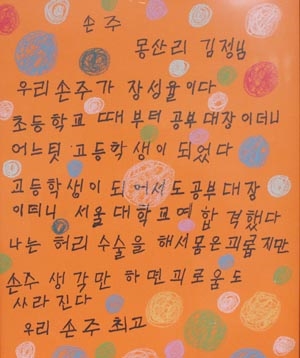 손주
몽산리 김정님
우리 손주가 장성율이다
초등학교 때부터 공부대장이더니
어느덧 고등학생이 되었다
고등학생이 되어서도 공부대장
이더니 서울대학교에 합격했다
나는 허리 수술을 해서 몸은 괴롭지만
손주 생각만 하면 괴로움도
사라진다
우리 손주 최고